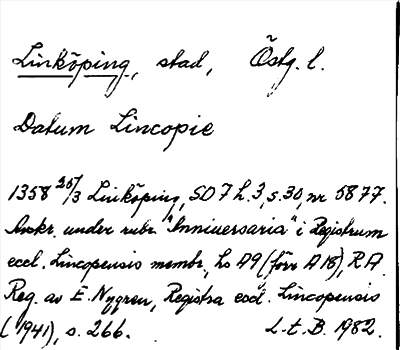 Linköping, stad, Östg. l.
Datum Lincopie
1358 20/3 Linköping, SD 7 h. 3, s. 30, nr 5877.
Avkr. under rubr. "Inniversaria" i Registrum
eccl. Lincopensis membr., hs A9 (förr A 18), RA.
Reg. av E. Nygren, Registra eccl. Lincopensis
(1941), s. 266. L.t.B. 1982.